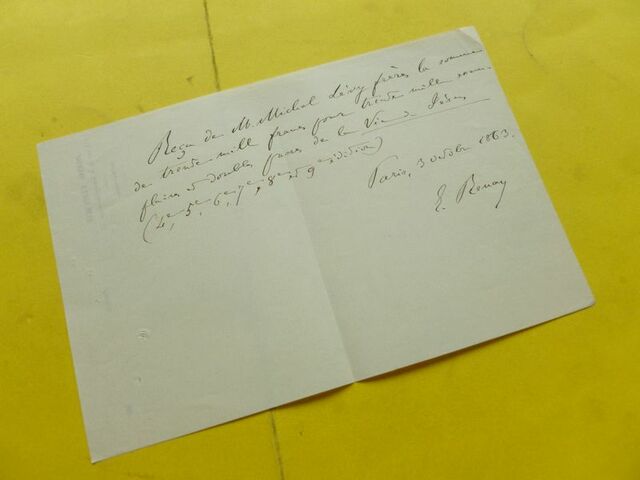 Reçu de M. Michel Lévy frères la somme
de trente mille francs pour trente mille exem-
plaires à doubles passes de la Vie de Jésus
(4e, 5e, 6e, 7e, 8e et 9e édition)
Paris, 3 octobre 1863.
E. Renan